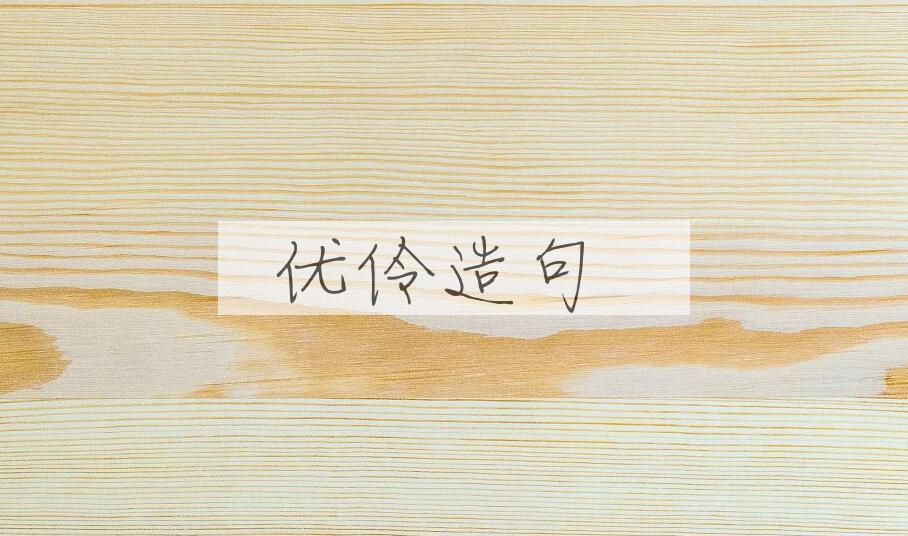 优伶造句